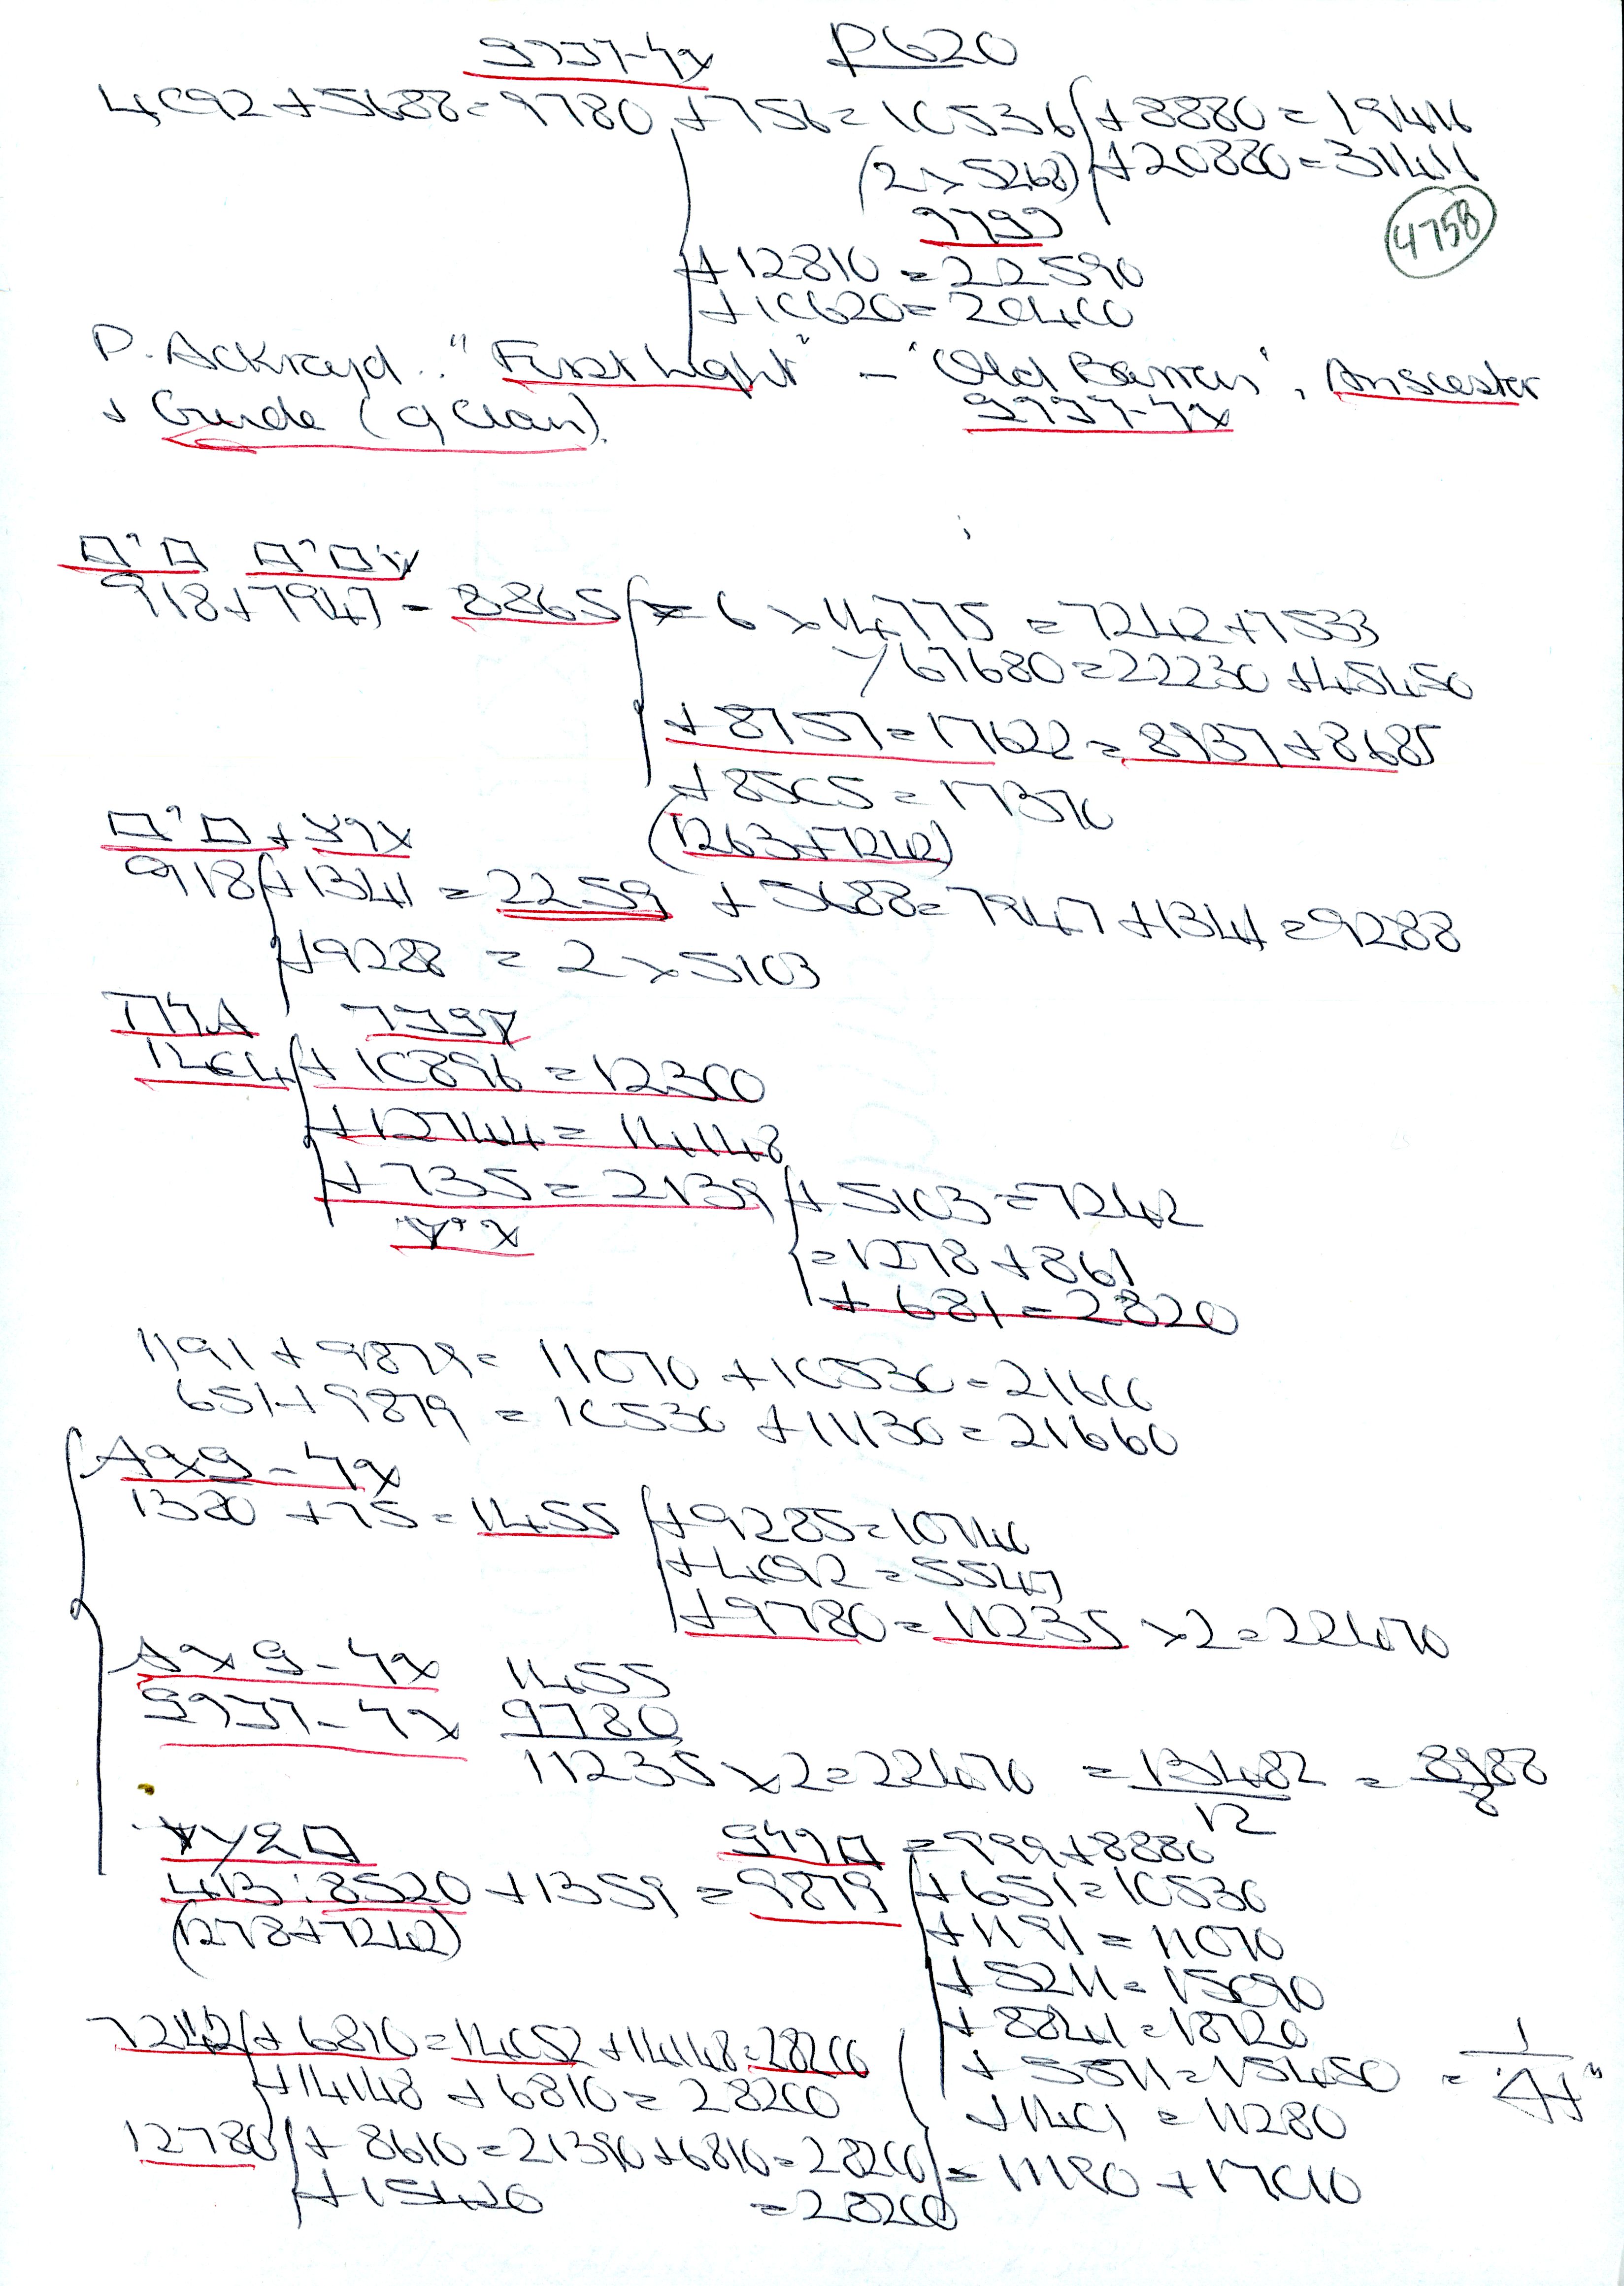 P620
4092 + 5688 = 9780 + 756 = 10536 + 8880 = 19416
(2 x 5268) + 20880 = 31416
4758
+ 12810 = 22590
+ 10620 = 20400
P. Ackroyd. "First Light" - 'Old Barren', Anscester
+ Guide (9 Clan).
918 + 7947 = 8865 = 6 x 14775 = 7242 + 7533
67680 = 22230 + 45450
+ 8757 = 17622 = 8937 + 8685
+ 8505 = 17370
(1263 + 7242)
918 + 1341 = 2259 + 5688 = 7947 + 1341 = 9288
+ 9288 = 2 x 5103
1404 + 10896 = 12300
+ 12744 = 14148
+ 735 = 2139 + 5103 = 7242
= 1278 + 861
+ 681 = 2820
1191 + 9879 = 11070 + 10530 = 21600
651 + 9879 = 10530 + 11130 = 21660
1380 + 75 = 1455 + 9285 = 10740
+ 4092 = 5547
+ 9780 = 11235 x 2 = 22470
1455
9780
11235 x 2 = 22470 = 13482 / 12 = 8988 / 8
= 999 + 8880
413 : 8520 + 1359 = 9879 + 651 = 10530
(1278 + 7242)
+ 1191 = 11070
+ 5211 = 15090
+ 8841 = 18720
7242 + 6810 = 14052 + 14148 = 28200
+ 5571 = 15450 =
+ 14148 + 6810 = 28200
+ 1401 = 11280
12780 + 8610 = 21390 + 6810 = 28200 = 11190 + 17010
+ 15420 = 28200